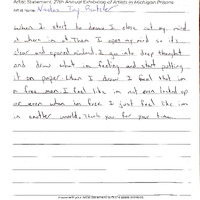 Artist Statement: 27th Annual Exhibition of Artists in Michigan Prisons
Jay Butler
When I start to draw I close out my mind
of where im at. Then I open my mind so its
clear and open minded. I go into deep thought
and draw what im feeling and start putting
it on paper. When I draw I feel that im
a free man. I feel like im not even locked up
or even when im free I just feel like im
in another world. Thank you for your time